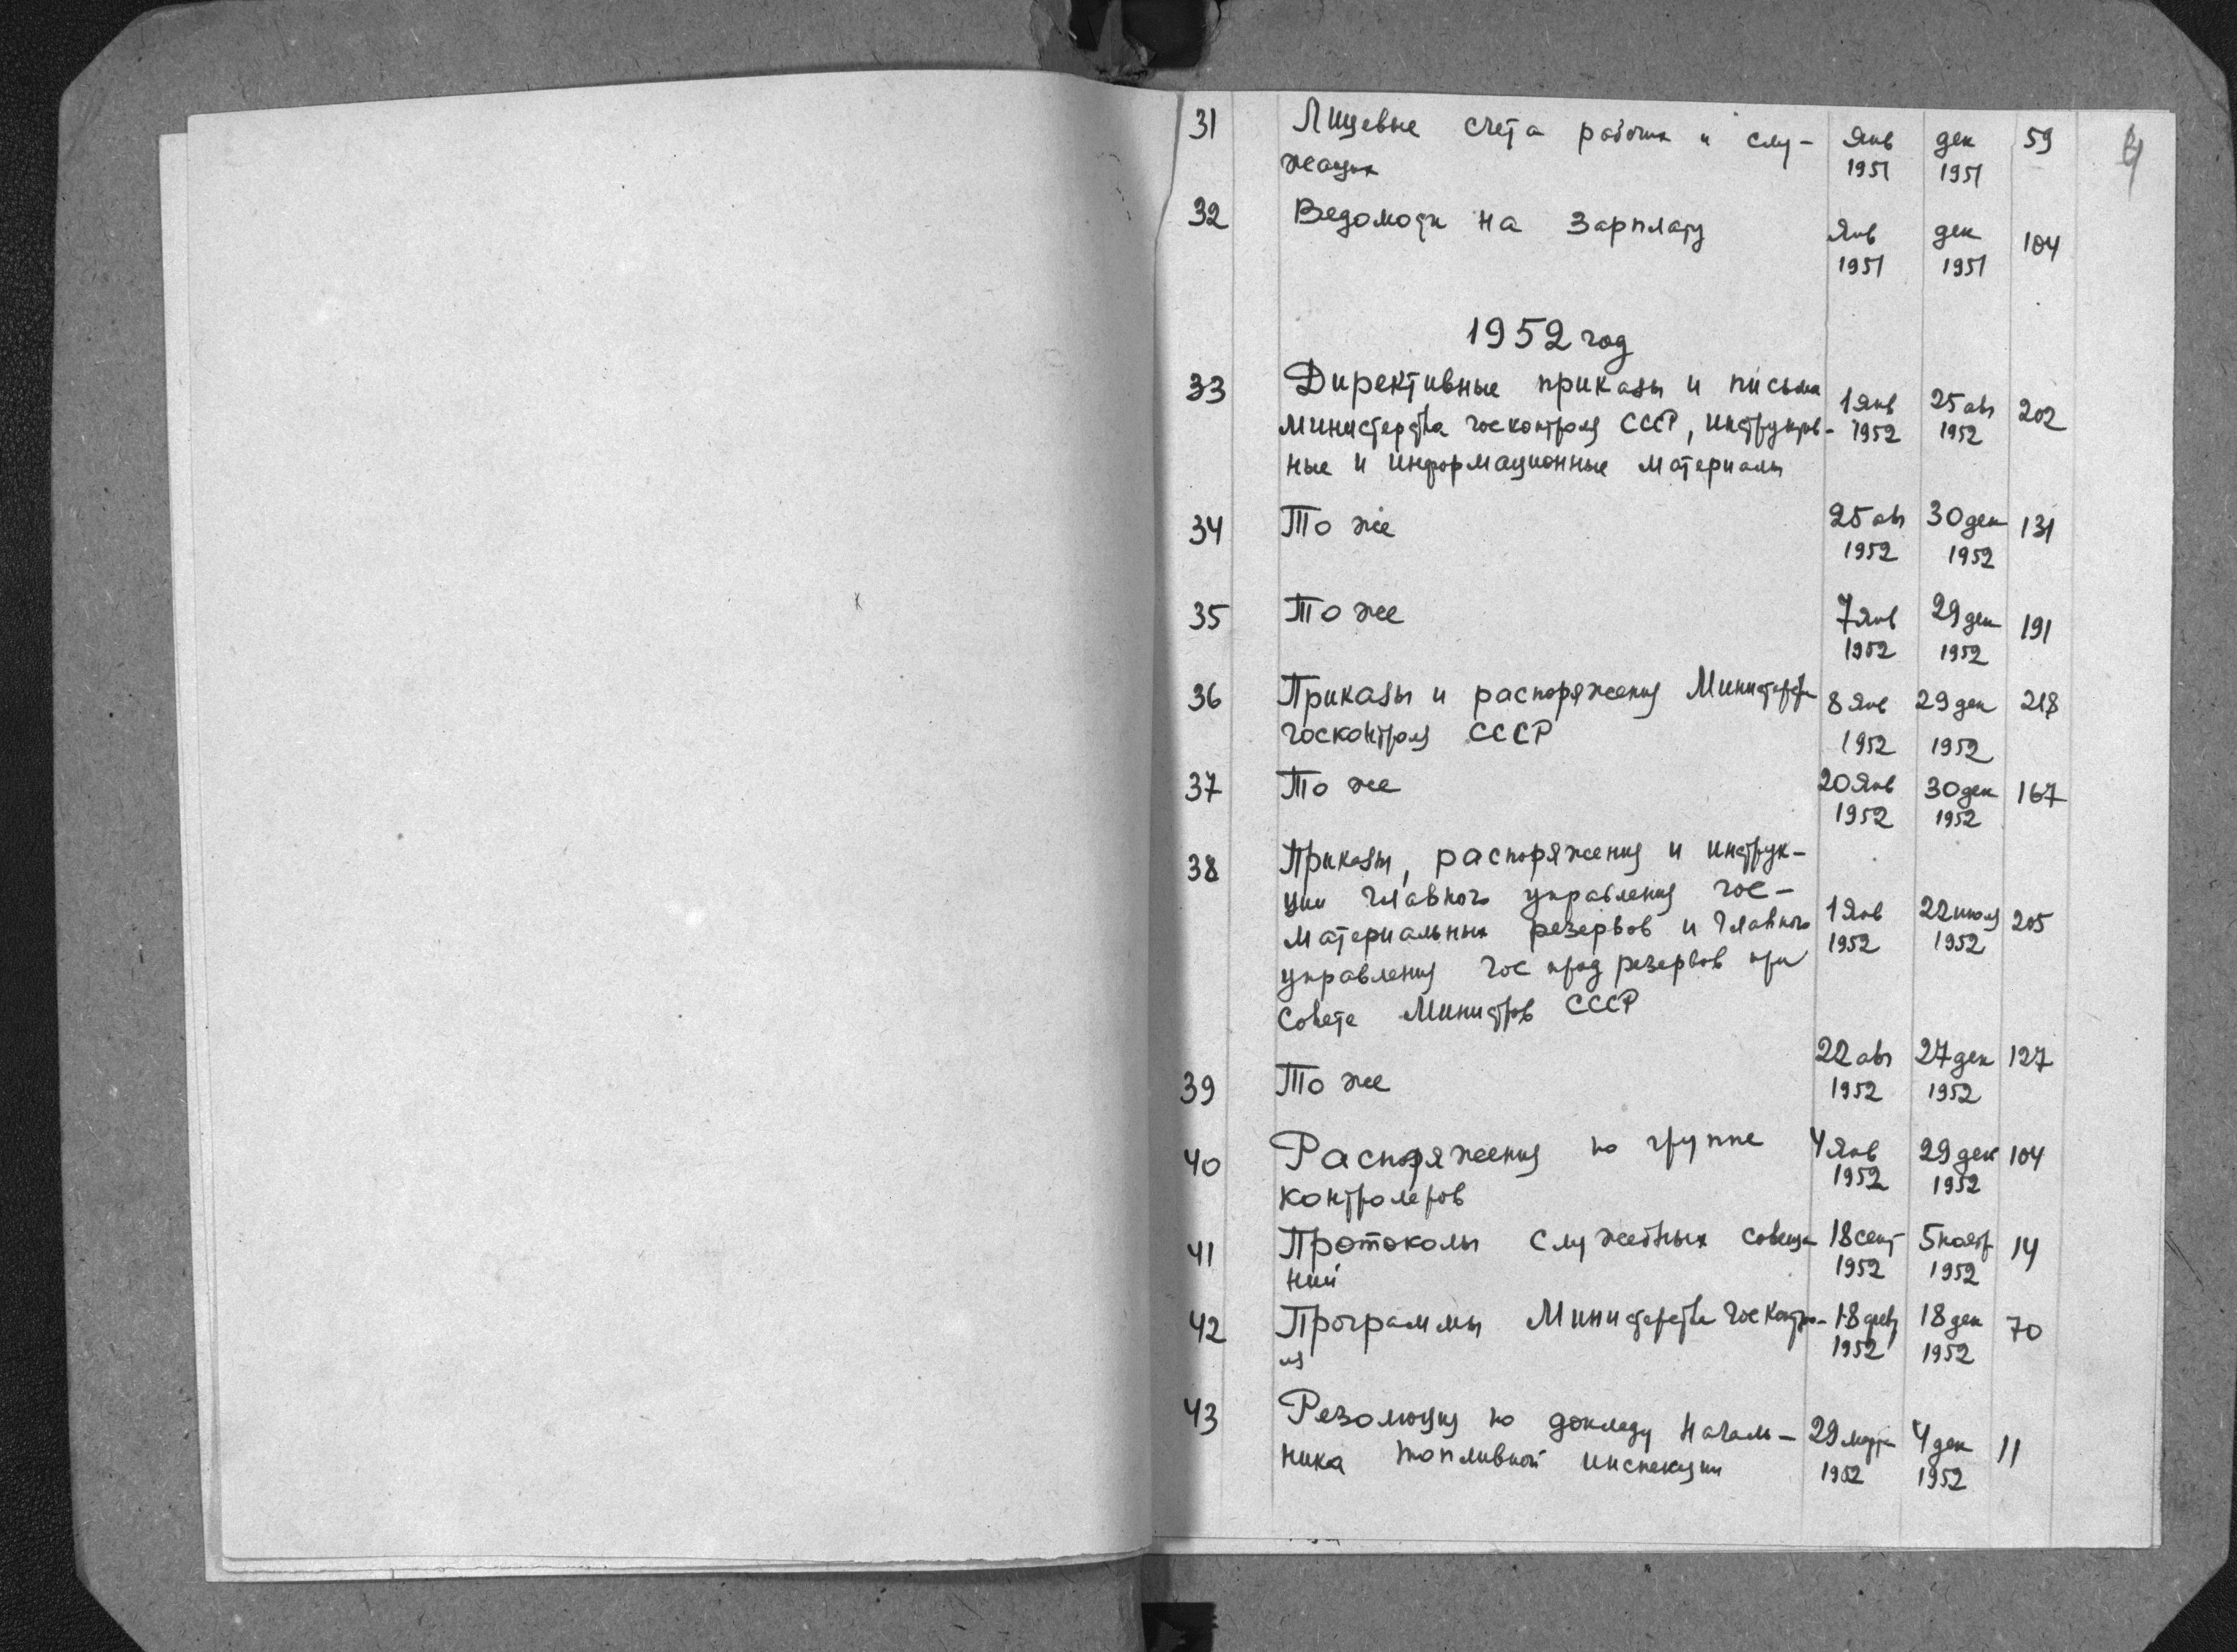 31 Лицевые счета рабочих и слу- Янв дек 59 4
жащих 1951 1951
32 Ведомости на зарплату Янв дек 104
1951 1951
1952 год
33 Директивные приказы и письма 1 Янв 25 авг 202
министерства госконтроля СССР, инструктив- 1952 1952
ные и информационные материалы
34 То же 25 авг 30 дек 131
1952 1952
35 То же 7 Янв 29 дек 191
1952 1952
36 Приказы и распоряжения Министерства 8 Янв 29 дек 218
госконтроля СССР 1952 1952
37 То же 20 Янв 30 дек 167
1952 1952
38 Приказы, распоряжения и инструк-
ции главного управления гос- 1 Янв 22 июля 205
материальных резервов и главного 1952 1952
управления гос прод резервов при
Совете Министров СССР
39 То же 22 авг 27 дек 127
1952 1952
40 Распоряжения по группе 4 Янв 29 дек 104
контролеров 1952 1952
41 Протоколы служебных совеща- 18 сент 5 нояб 14
ний 1952 1952
42 Программы Министерства Госконтро- 18 фев 18 дек 70
ля 1952 1952
43 Резолюция по докладу началь- 29 марта 4 дек 11
ника топливной инспекции 1952 1952